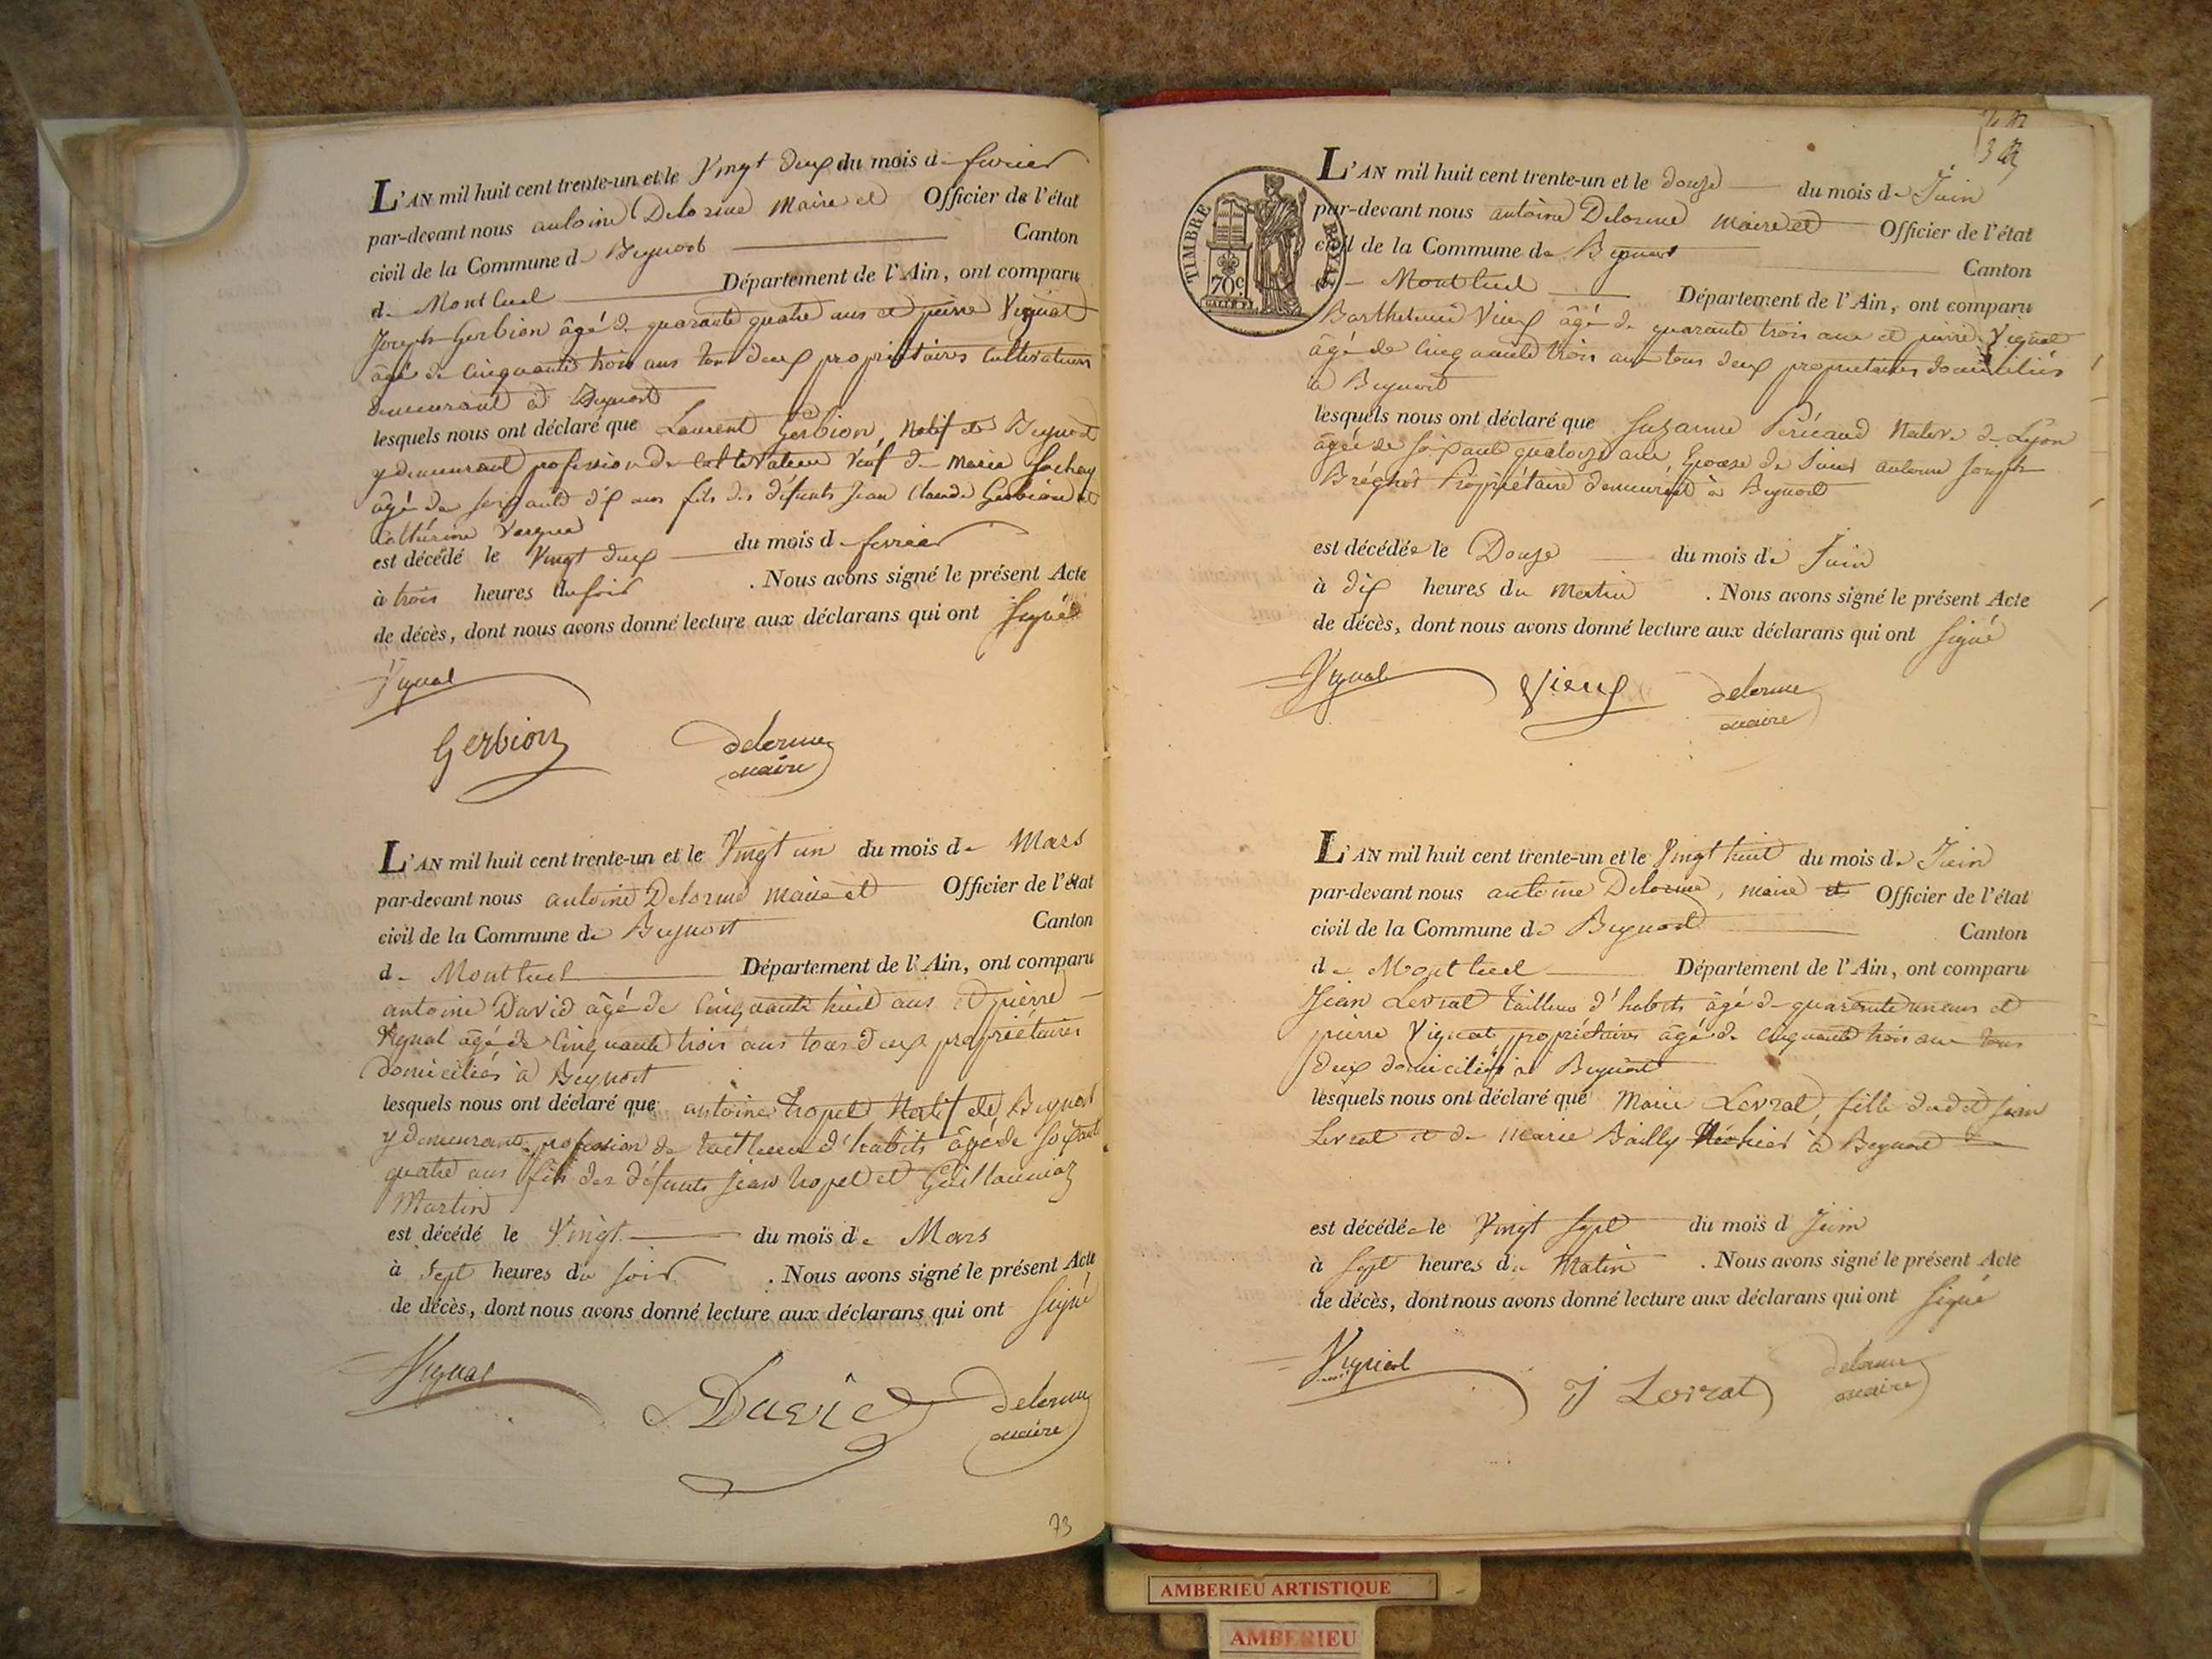 L'AN mil huit cent trente-un et le Vingt deux du mois de fevrier
par-devant nous antoine Delorme Maire et Officier de l'état
civil de la Commune de Beynost Canton
de Montluel Département de l'Ain, ont comparu
Joseph Gerbion âgé de quarante quatre ans et pierre Vignat
âgé de Cinquante trois ans tous deux propriétaires Cultivateurs
demeurant à Beynost
lesquels nous ont déclaré que Laurent Gerbion, Natif de Beynost
y demeurant profession de Cultivateur Veuf de Marie
âgé de soixante dix ans fils des défunts Jean Claude Gerbion et
Catherine
est décédé le Vingt deux du mois de fevrier
à trois heures du soir . Nous avons signé le présent Acte
de décès, dont nous avons donné lecture aux déclarans qui ont signé
Vignat
Gerbion delorme
maire
L'AN mil huit cent trente-un et le Vingt un du mois de Mars
par-devant nous antoine Delorme Maire et Officier de l'état
civil de la Commune de Beynost Canton
de Montluel Département de l'Ain, ont comparu
antoine David âgé de Cinquante huit ans et pierre
Vignat âgé de Cinquante trois ans tous deux propriétaires
domiciliés à Beynost
lesquels nous ont déclaré que antoine tropel Natif de Beynost
y demeurant profession de tailleur d'habits âgé de soixante
quatre ans fils des défunts Jean tropel et
Martin
est décédé le Vingt du mois de Mars
à Sept heures du soir . Nous avons signé le présent Acte
de décès, dont nous avons donné lecture aux déclarans qui ont signé
Vignat David delorme
maire
73
L'AN mil huit cent trente-un et le douze du mois de Juin
par-devant nous antoine Delorme Maire et Officier de l'état
civil de la Commune de Beynost Canton
de Montluel Département de l'Ain, ont comparu
TIMBRE ROYAL
70c
Barthelemi Vieux âgé de quarante trois ans et pierre Vignat
âgé de Cinquante trois ans tous deux propriétaires domiciliés
à Beynost
lesquels nous ont déclaré que Suzanne Péricaud Native de Lyon
âgée de soixante quatorze ans, Epouse de Sieur antoine Joseph
Bréghot Propriétaire demeurant à Beynost
est décédée le Douze du mois de Juin
à dix heures du Matin . Nous avons signé le présent Acte
de décès, dont nous avons donné lecture aux déclarans qui ont signé
Vignat Vieux delorme
maire
L'AN mil huit cent trente-un et le Vingt huit du mois de Juin
par-devant nous antoine Delorme, maire et Officier de l'état
civil de la Commune de Beynost Canton
de Montluel Département de l'Ain, ont comparu
Jean Levrat tailleur d'habits âgé de quarante un ans et
pierre Vignat propriétaire âgé de cinquante trois ans tous
deux domiciliés à Beynost
lesquels nous ont déclaré que Marie Levrat, fille dudit Jean
Levrat et de Marie Bailly à Beynost
est décédée le Vingt sept du mois d Juin
à sept heures du Matin . Nous avons signé le présent Acte
de décès, dont nous avons donné lecture aux déclarans qui ont signé
Vignat J Levrat delorme
maire
AMBERIEU ARTISTIQUE
AMBERIEU